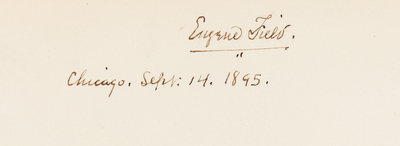 Eugene Field.
"
Chicago. Sept: 14. 1895.